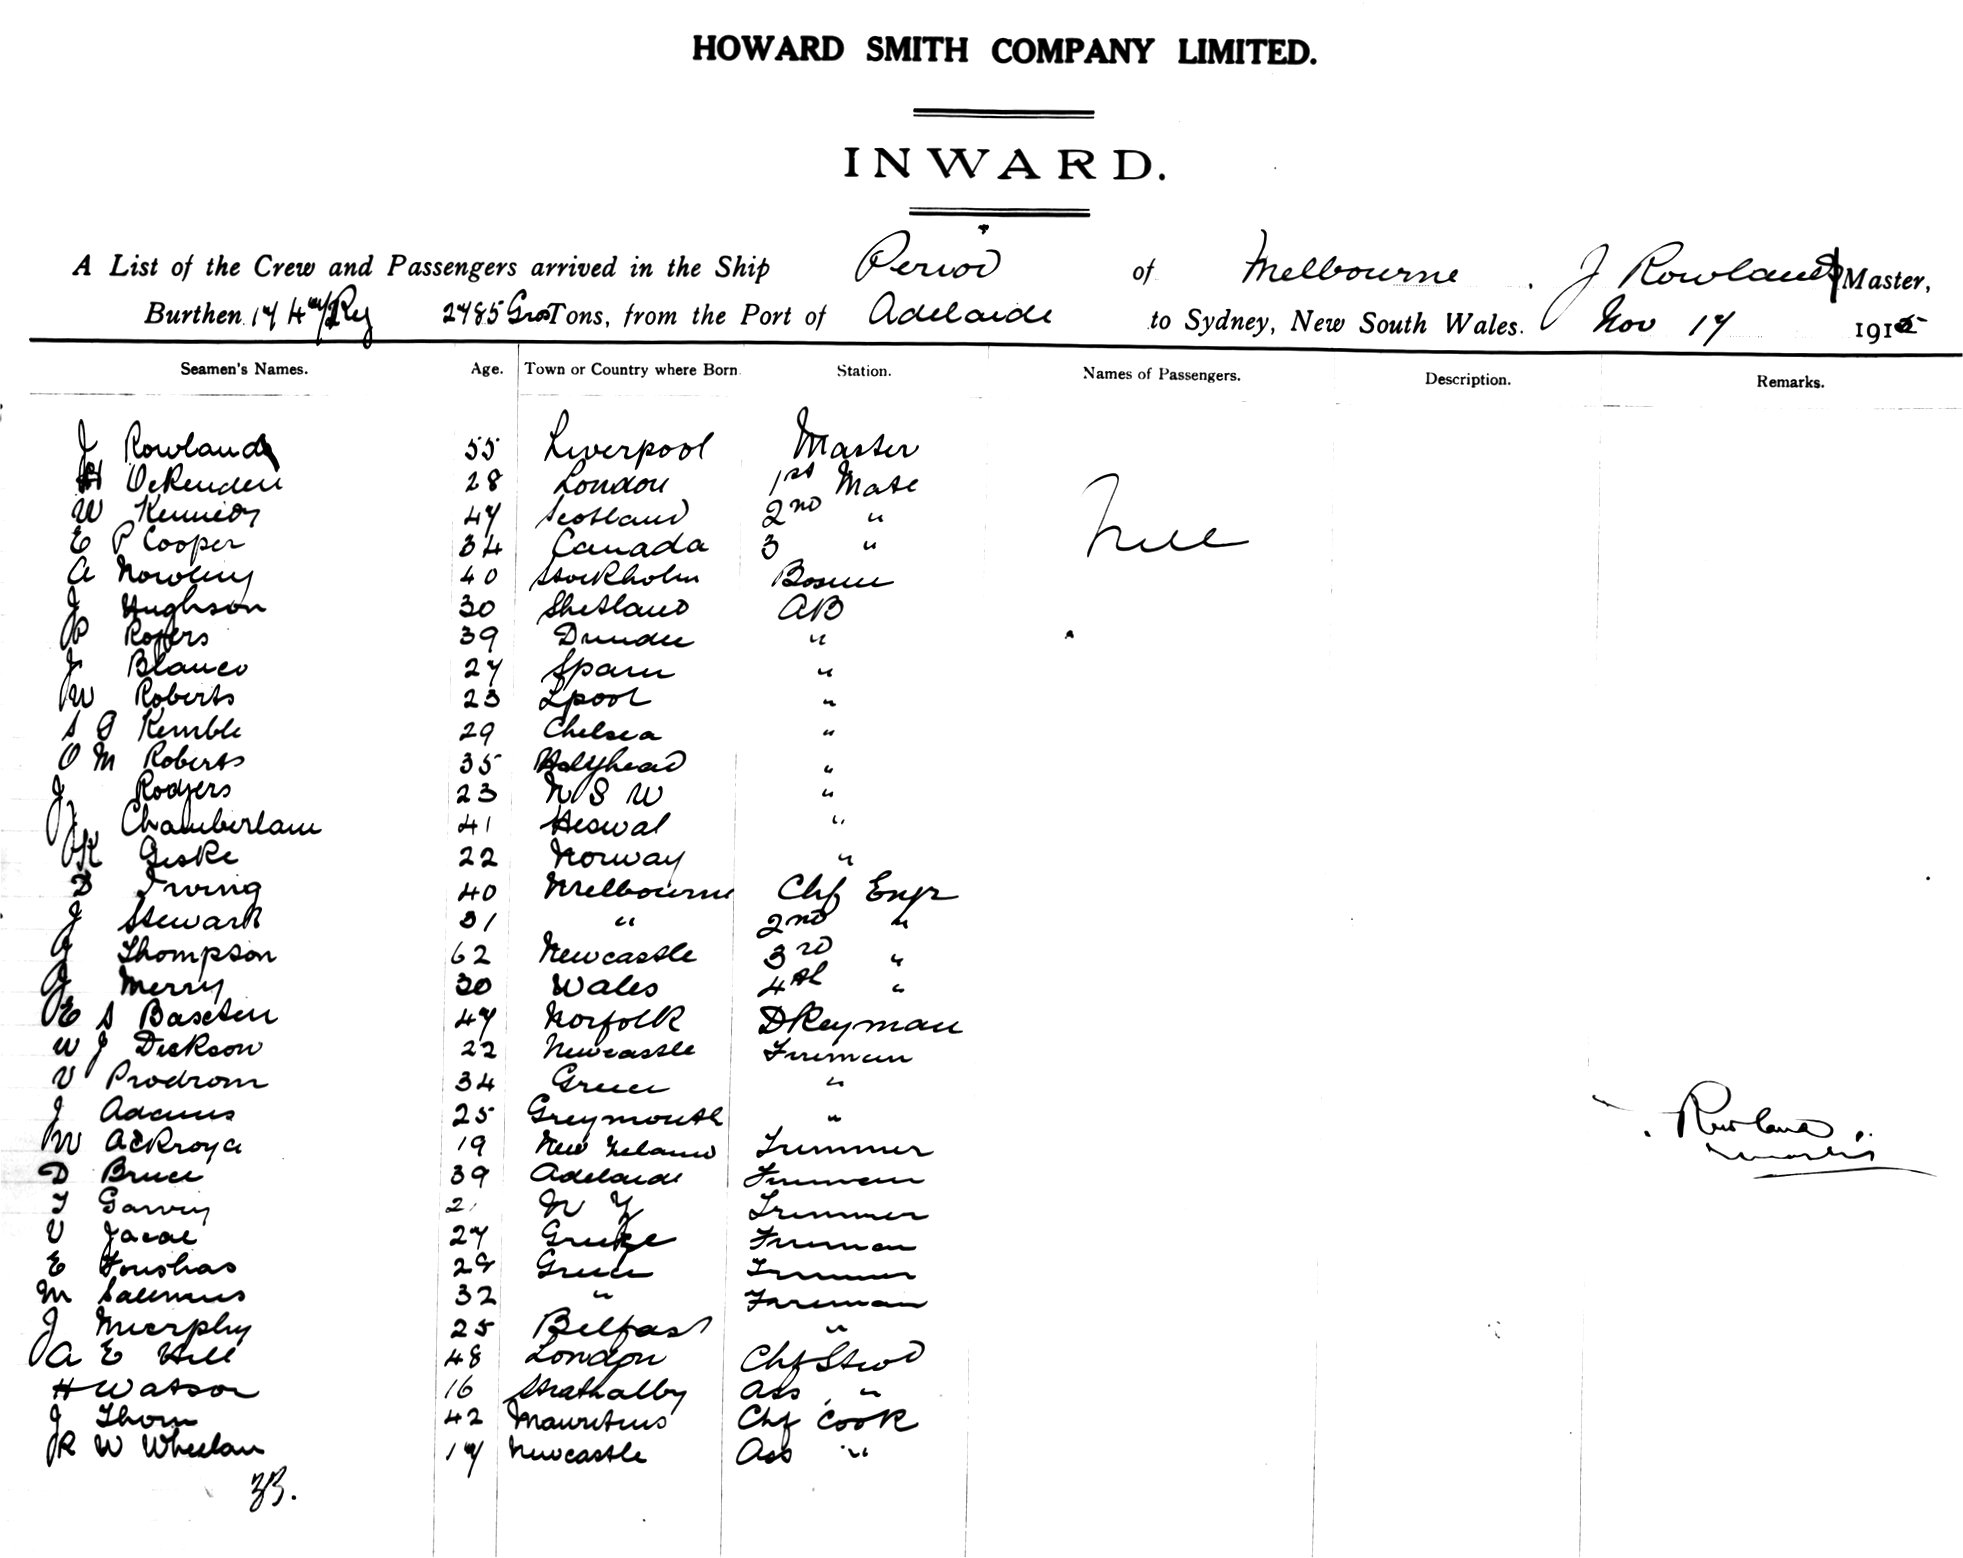 HOWARD SMITH COMPANY LIMITED.
INWARD.
A List of the Crew and Passengers arrived in the Ship Period of Melbourne. J Rowlands Master,
Burthen 2785 Gros Tons, from the Port of Adelaide to Sydney, New South Wales. Nov 17 1915
Seamen's Names. Age. Town or Country where Born Station. Names of Passengers. Description. Remarks.
J Rowlands 55 Liverpool Master
H Ockenden 28 London 1st Mate
W Kennedy 47 Scotland 2nd "
Nill
E P Cooper 34 Canada 3 "
A 40 Stockholm Bosun
J Hughson 30 Shetland AB
P Rogers 39 Dundee "
J Blanco 27 Spain "
W Roberts 23 Lpool "
S G Kemble 29 Chelsea "
O M Roberts 35 Holyhead "
J Rodgers 23 N S W "
J Chamberlain 41 Heswal "
K Giske 22 Norway "
D Irving 40 Melbourne Chf Engr
J Stewart 31 " 2nd "
J Thompson 62 Newcastle 3rd "
J Merry 30 Wales 4th "
E S Baxter 47 Norfolk DKeyman
W J Dickson 22 Newcastle Fireman
V Prodrom 34 Greece "
J Adams 25 Greymouth "
W Ackroyd 19 New Zeland Trimmer
Rowland
D Bruce 39 Adelaide Fireman
T 2 N Z Trimmer
V 27 Greece Fireman
E 29 Greece Trimmer
M 32 " Fireman
J Murphy 25 Belfast "
A E Hill 48 London Chf Stwd
H Watson 16 Strathalby Ass "
J Thom 42 Mauritius Chf Cook
R W Wheelan 17 Newcastle Ass "
33.